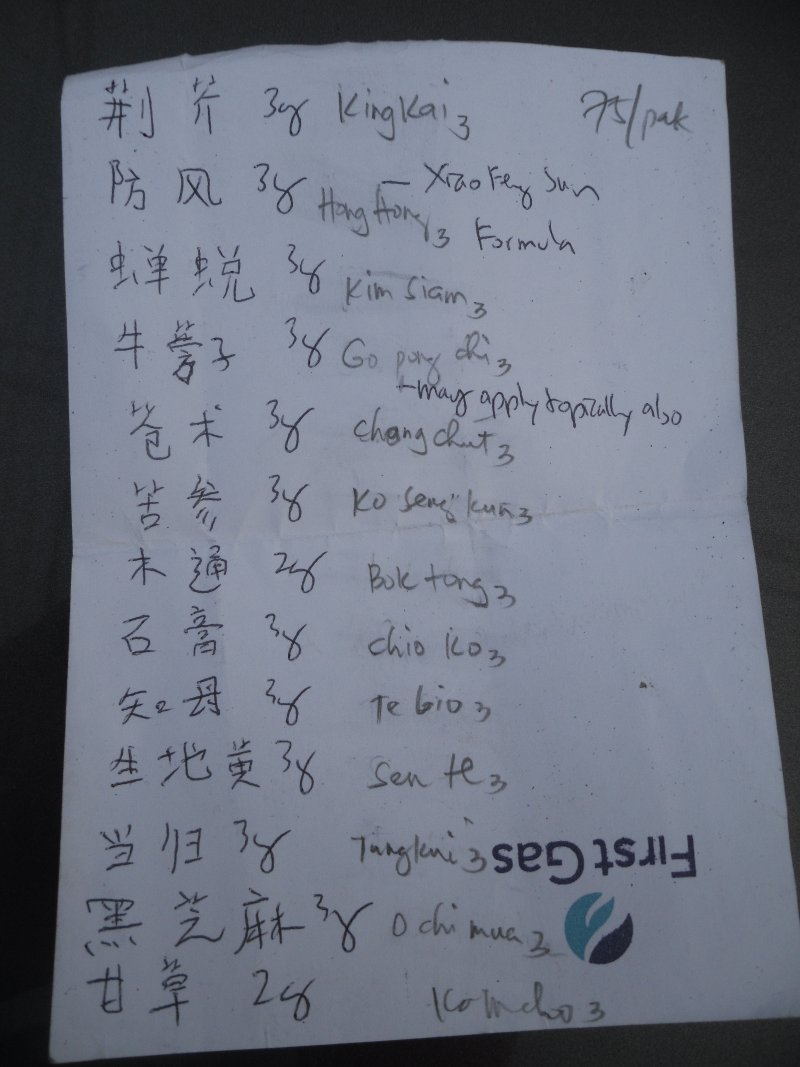 荆芥 3g KingKai 3 75/pak
防风 3g Hong Hong 3 - Xiao Feng San Formula
蝉蜕 3g Kim Siam 3
牛蒡子 3g Go pong chi 3
- may apply topically also
苍术 3g Chong chut 3
苦参 3g Ko Seng kun 3
木通 2g Bok tong 3
石膏 3g Chio Ko 3
知母 3g Te bio 3
生地黄 3g Sen te 3
当归 3g Tangkui 3
First Gas
黑芝麻 3g O chi mua 3
甘草 2g Kamcho 3